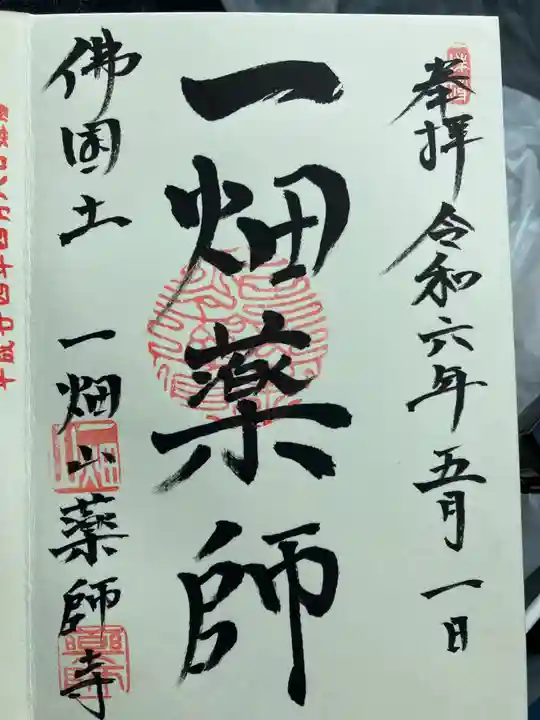 奉拝 令和六年 五月 一日
一畑薬師
佛国土 一畑山薬師寺